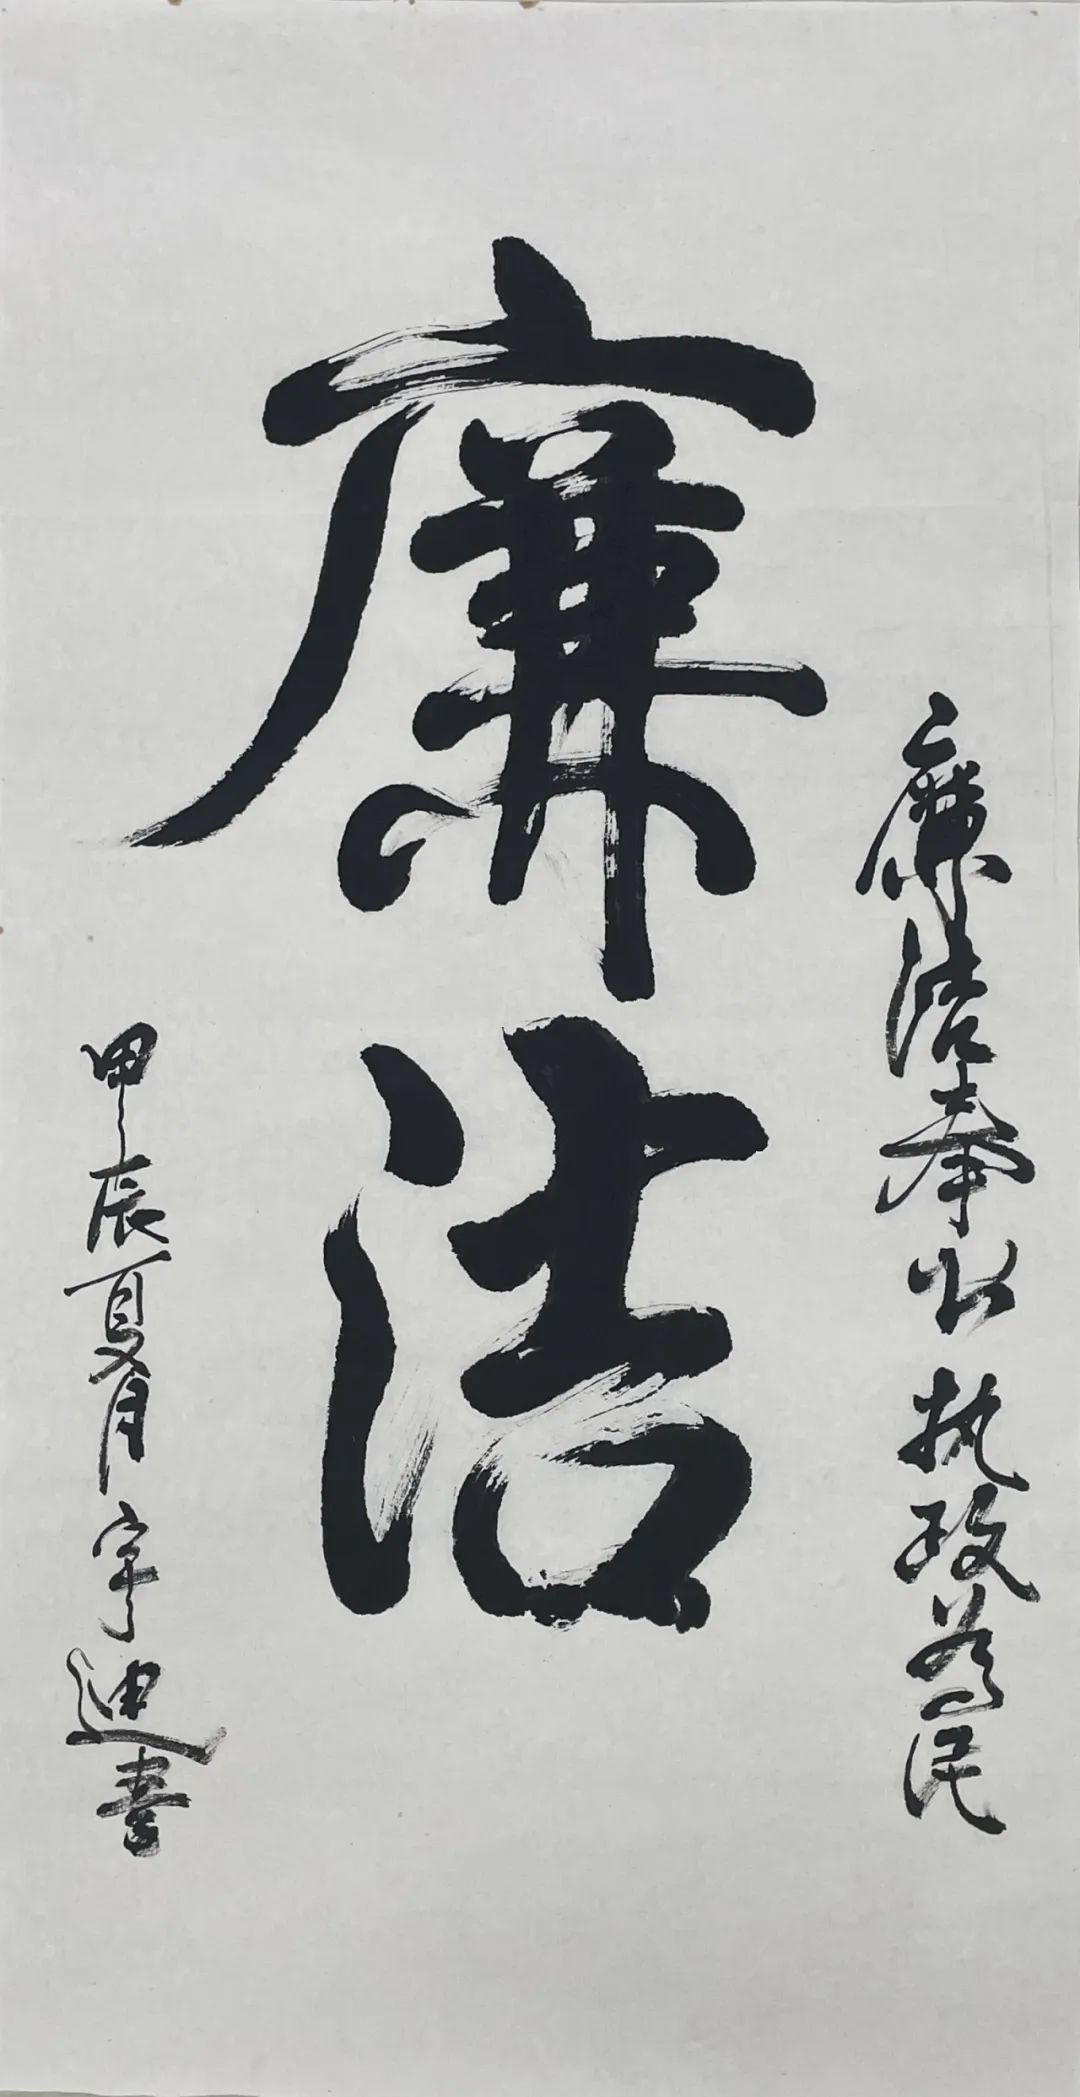 廉洁奉公执政為民
廉洁
甲辰夏月宇迪書